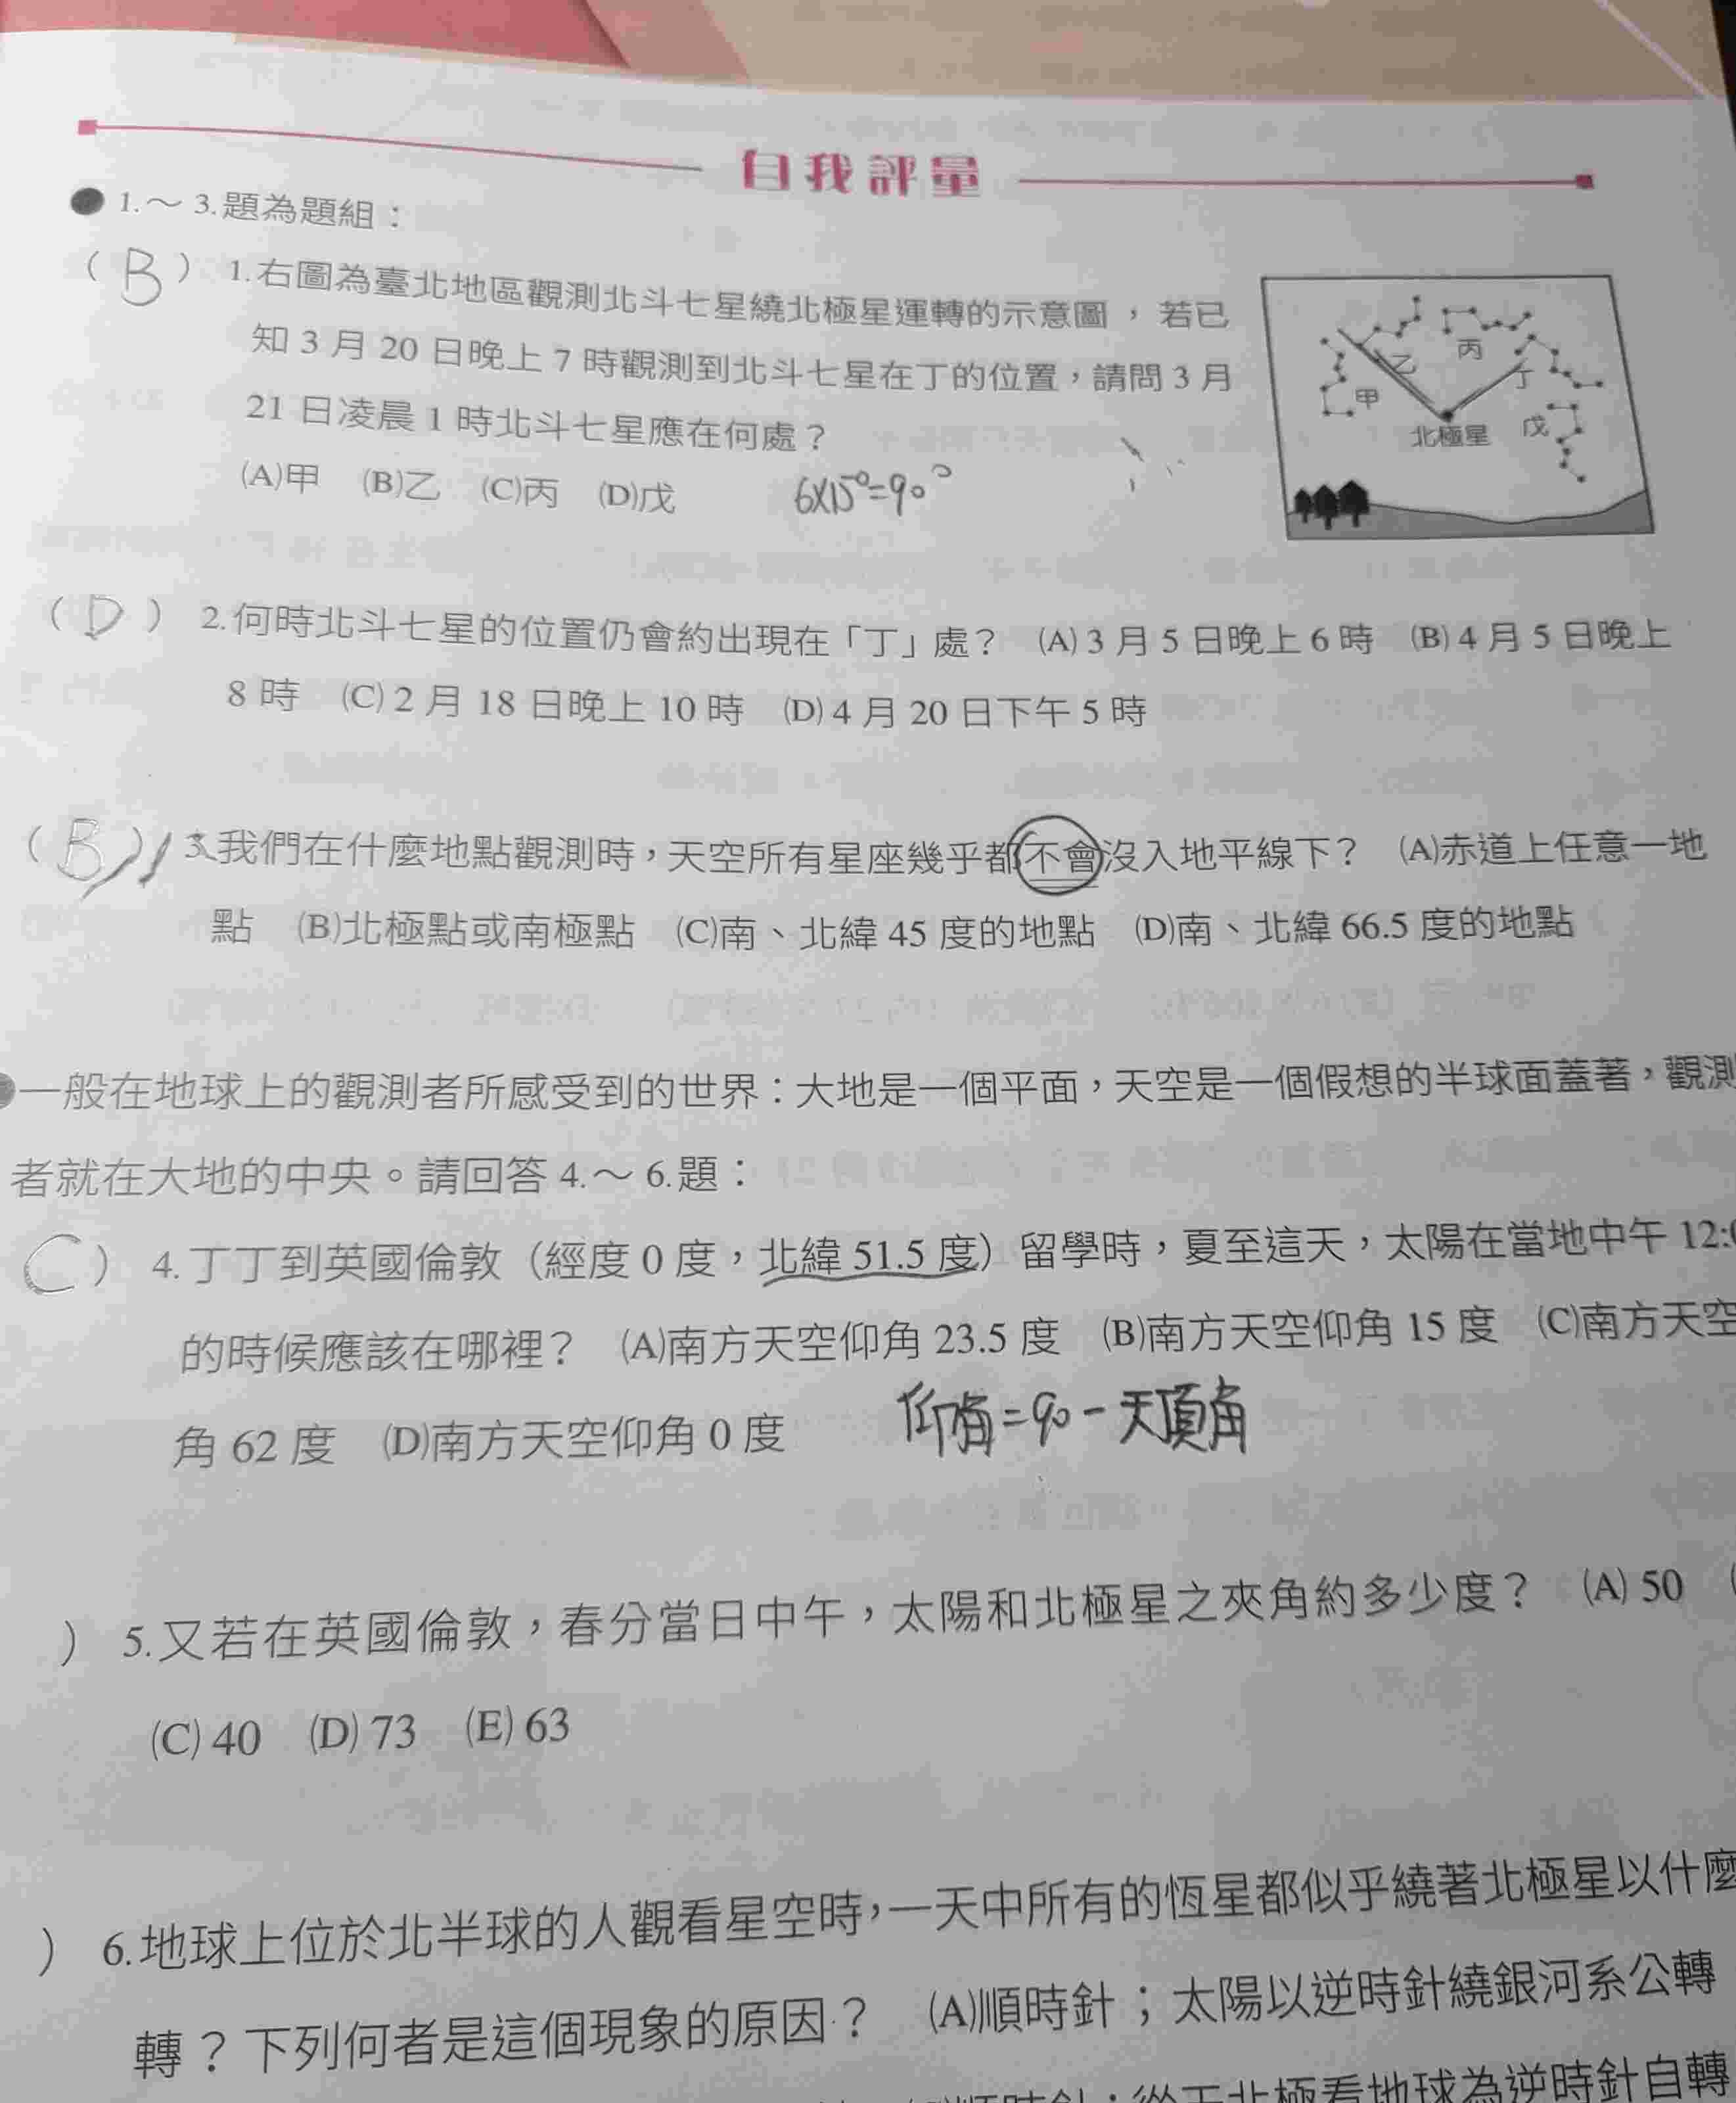 自我評量
1.～3.題為題組：
（B）1.右圖為臺北地區觀測北斗七星繞北極星運轉的示意圖，若已
知3月20日晚上7時觀測到北斗七星在丁的位置，請問3月
21日凌晨1時北斗七星應在何處？
(A)甲 (B)乙 (C)丙 (D)戊 6×15°=90°
甲
乙
丙
丁
戊
北極星
（D）2.何時北斗七星的位置仍會約出現在「丁」處？ (A)3月5日晚上6時 (B)4月5日晚上
8時 (C)2月18日晚上10時 (D)4月20日下午5時
（B）3.我們在什麼地點觀測時，天空所有星座幾乎都不會沒入地平線下？ (A)赤道上任意一地
點 (B)北極點或南極點 (C)南、北緯45度的地點 (D)南、北緯66.5度的地點
一般在地球上的觀測者所感受到的世界：大地是一個平面，天空是一個假想的半球面蓋著，觀測
者就在大地的中央。請回答4.～6.題：
C）4.丁丁到英國倫敦（經度0度，北緯51.5度）留學時，夏至這天，太陽在當地中午12:
的時候應該在哪裡？ (A)南方天空仰角23.5度 (B)南方天空仰角15度 (C)南方天空
角62度 (D)南方天空仰角0度 仰角=90-天頂角
）5.又若在英國倫敦，春分當日中午，太陽和北極星之夾角約多少度？ (A)50
(C)40 (D)73 (E)63
）6.地球上位於北半球的人觀看星空時，一天中所有的恆星都似乎繞著北極星以什麼
轉？下列何者是這個現象的原因？ (A)順時針；太陽以逆時針繞銀河系公轉
順時針；從天北極看地球為逆時針自轉